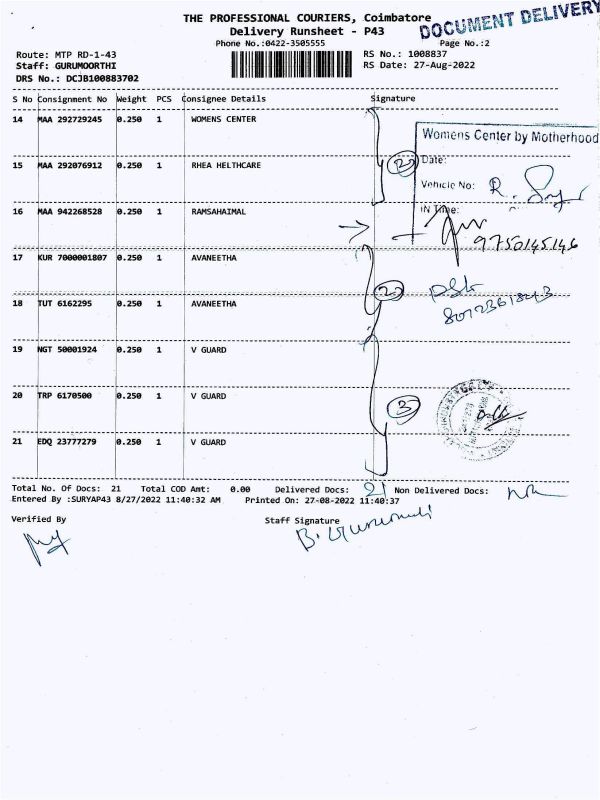 THE PROFESSIONAL COURIERS, Coimbatore
DOCUMENT DELIVERY
Delivery Runsheet - P43
Phone No.:0422-3505555
Page No.:2
Route: MTP RD-1-43
RS No.: 1008837
Staff: GURUMOORTHI
RS Date: 27-Aug-2022
DRS No.: DCJB100883702
S No Consignment No Weight PCS Consignee Details Signature
14 MAA 292729245 0.250 1 WOMENS CENTER
Womens Center by Motherhood
15 MAA 292076912 0.250 1 RHEA HELTHCARE
2
Date:
Vehicle No:
16 MAA 942268528 0.250 1 RAMSAHAIMAL
IN Time:
9750145146
17 KUR 7000001807 0.250 1 AVANEETHA
2
18 TUT 6162295 0.250 1 AVANEETHA
19 NGT 50001924 0.250 1 V GUARD
20 TRP 6170500 0.250 1 V GUARD
3
21 EDQ 23777279 0.250 1 V GUARD
Total No. Of Docs: 21 Total COD Amt: 0.00 Delivered Docs: 21 Non Delivered Docs:
Entered By :SURYAP43 8/27/2022 11:40:32 AM Printed On: 27-08-2022 11:40:37
Verified By
Staff Signature